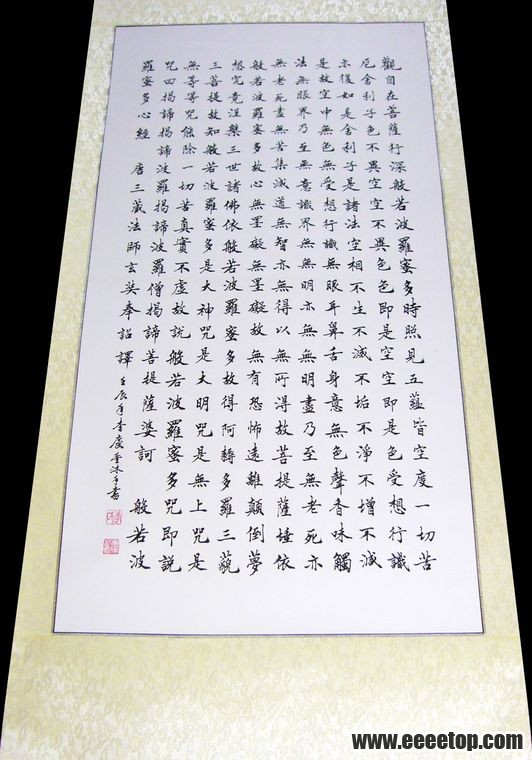 觀自在菩薩行深般若波羅蜜多時照見五蘊皆空度一切苦
厄舍利子色不異空空不異色色即是空空即是色受想行識
亦復如是舍利子是諸法空相不生不滅不垢不淨不增不減
是故空中無色無受想行識無眼耳鼻舌身意無色聲香味觸
法無眼界乃至無意識界無無明亦無無明盡乃至無老死亦
無老死盡無苦集滅道無智亦無得以無所得故菩提薩埵依
般若波羅蜜多故心無罣礙無罣礙故無有恐怖遠離顛倒夢
想究竟涅槃三世諸佛依般若波羅蜜多故得阿耨多羅三藐
三菩提故知般若波羅蜜多是大神咒是大明咒是無上咒是
無等等咒能除一切苦真實不虛故說般若波羅蜜多咒即說
咒曰揭諦揭諦波羅揭諦波羅僧揭諦菩提薩婆訶 般若波
羅蜜多心經 唐三藏法師玄奘奉詔譯
壬辰年李慶沐手書
www.eeeetop.com